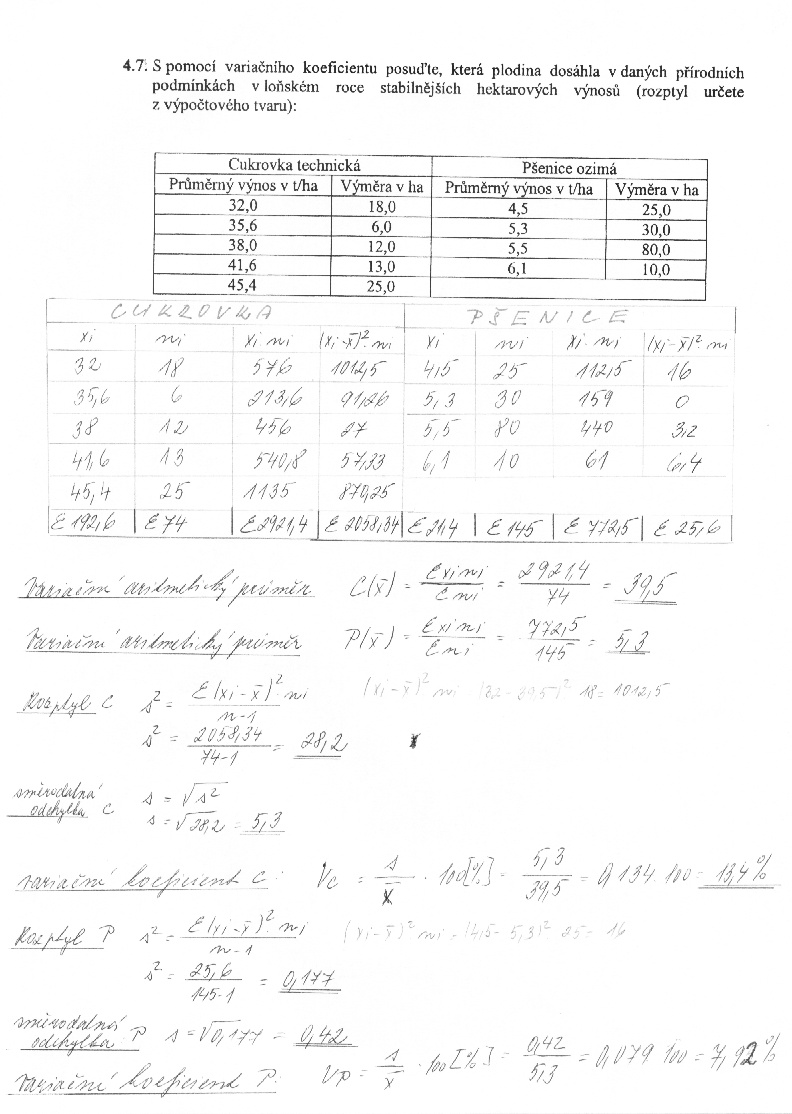 4.7. S pomocí variačního koeficientu posuďte, která plodina dosáhla v daných přírodních
podmínkách v loňském roce stabilnějších hektarových výnosů (rozptyl určete
z výpočtového tvaru):
Cukrovka technická Pšenice ozimá
Průměrný výnos v t/ha Výměra v ha Průměrný výnos v t/ha Výměra v ha
32,0 18,0 4,5 25,0
35,6 6,0 5,3 30,0
38,0 12,0 5,5 80,0
41,6 13,0 6,1 10,0
45,4 25,0
CUKROVKA PŠENICE
xi ni xi ni (xi-x̄)². ni xi ni xi. ni (xi-x̄)². ni
32 18 576 1012,5 4,5 25 112,5 16
35,6 6 213,6 91,26 5,3 30 159 0
38 12 456 27 5,5 80 440 3,2
41,6 13 540,8 57,33 6,1 10 61 6,4
45,4 25 1135 870,25
Σ 192,6 Σ 74 Σ 2921,4 Σ 2058,34 Σ 21,4 Σ 145 Σ 772,5 Σ 25,6
Variační aritmetický průměr C(x̄) = Σxi ni / Σni = 2921,4 / 74 = 39,5
Variační aritmetický průměr P(x̄) = Σxi ni / Σni = 772,5 / 145 = 5,3
Rozptyl C s² = Σ(xi-x̄)². ni / n-1 (xi-x̄)² ni = (32-39,5)² 18 = 1012,5
s² = 2058,34 / 74-1 = 28,2
směrodatná odchylka C s = √s²
s = √28,2 = 5,3
variační koeficient C: Vc = s / x̄ . 100[%] = 5,3 / 39,5 = 0,134. 100 = 13,4%
Rozptyl P s² = Σ(xi-x̄)². ni / n-1 (xi-x̄)² ni = (4,5-5,3)². 25 = 16
s² = 25,6 / 145-1 = 0,177
směrodatná odchylka P s = √0,177 = 0,42
variační koeficient P: Vp = s / x̄ . 100[%] = 0,42 / 5,3 = 0,079 100 = 7,92%